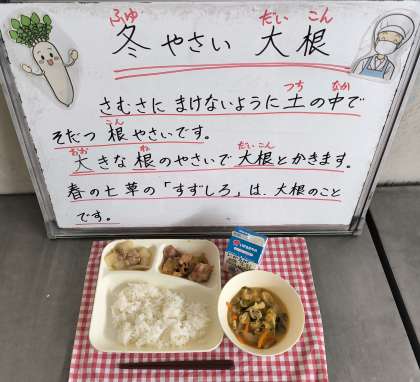 ふゆ だいこん
冬やさい 大根
つち なか
さむさに まけないように 土の中で
こん
そだつ 根やさいです。
おお ね だいこん
大きな 根のやさいで 大根とかきます。
春の七草の「すずしろ」は、大根のこと
です。